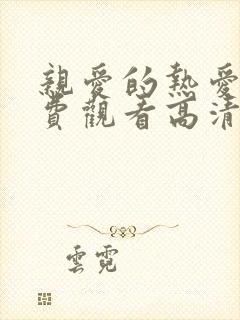 親愛的熱愛
費觀看高清
雲霓